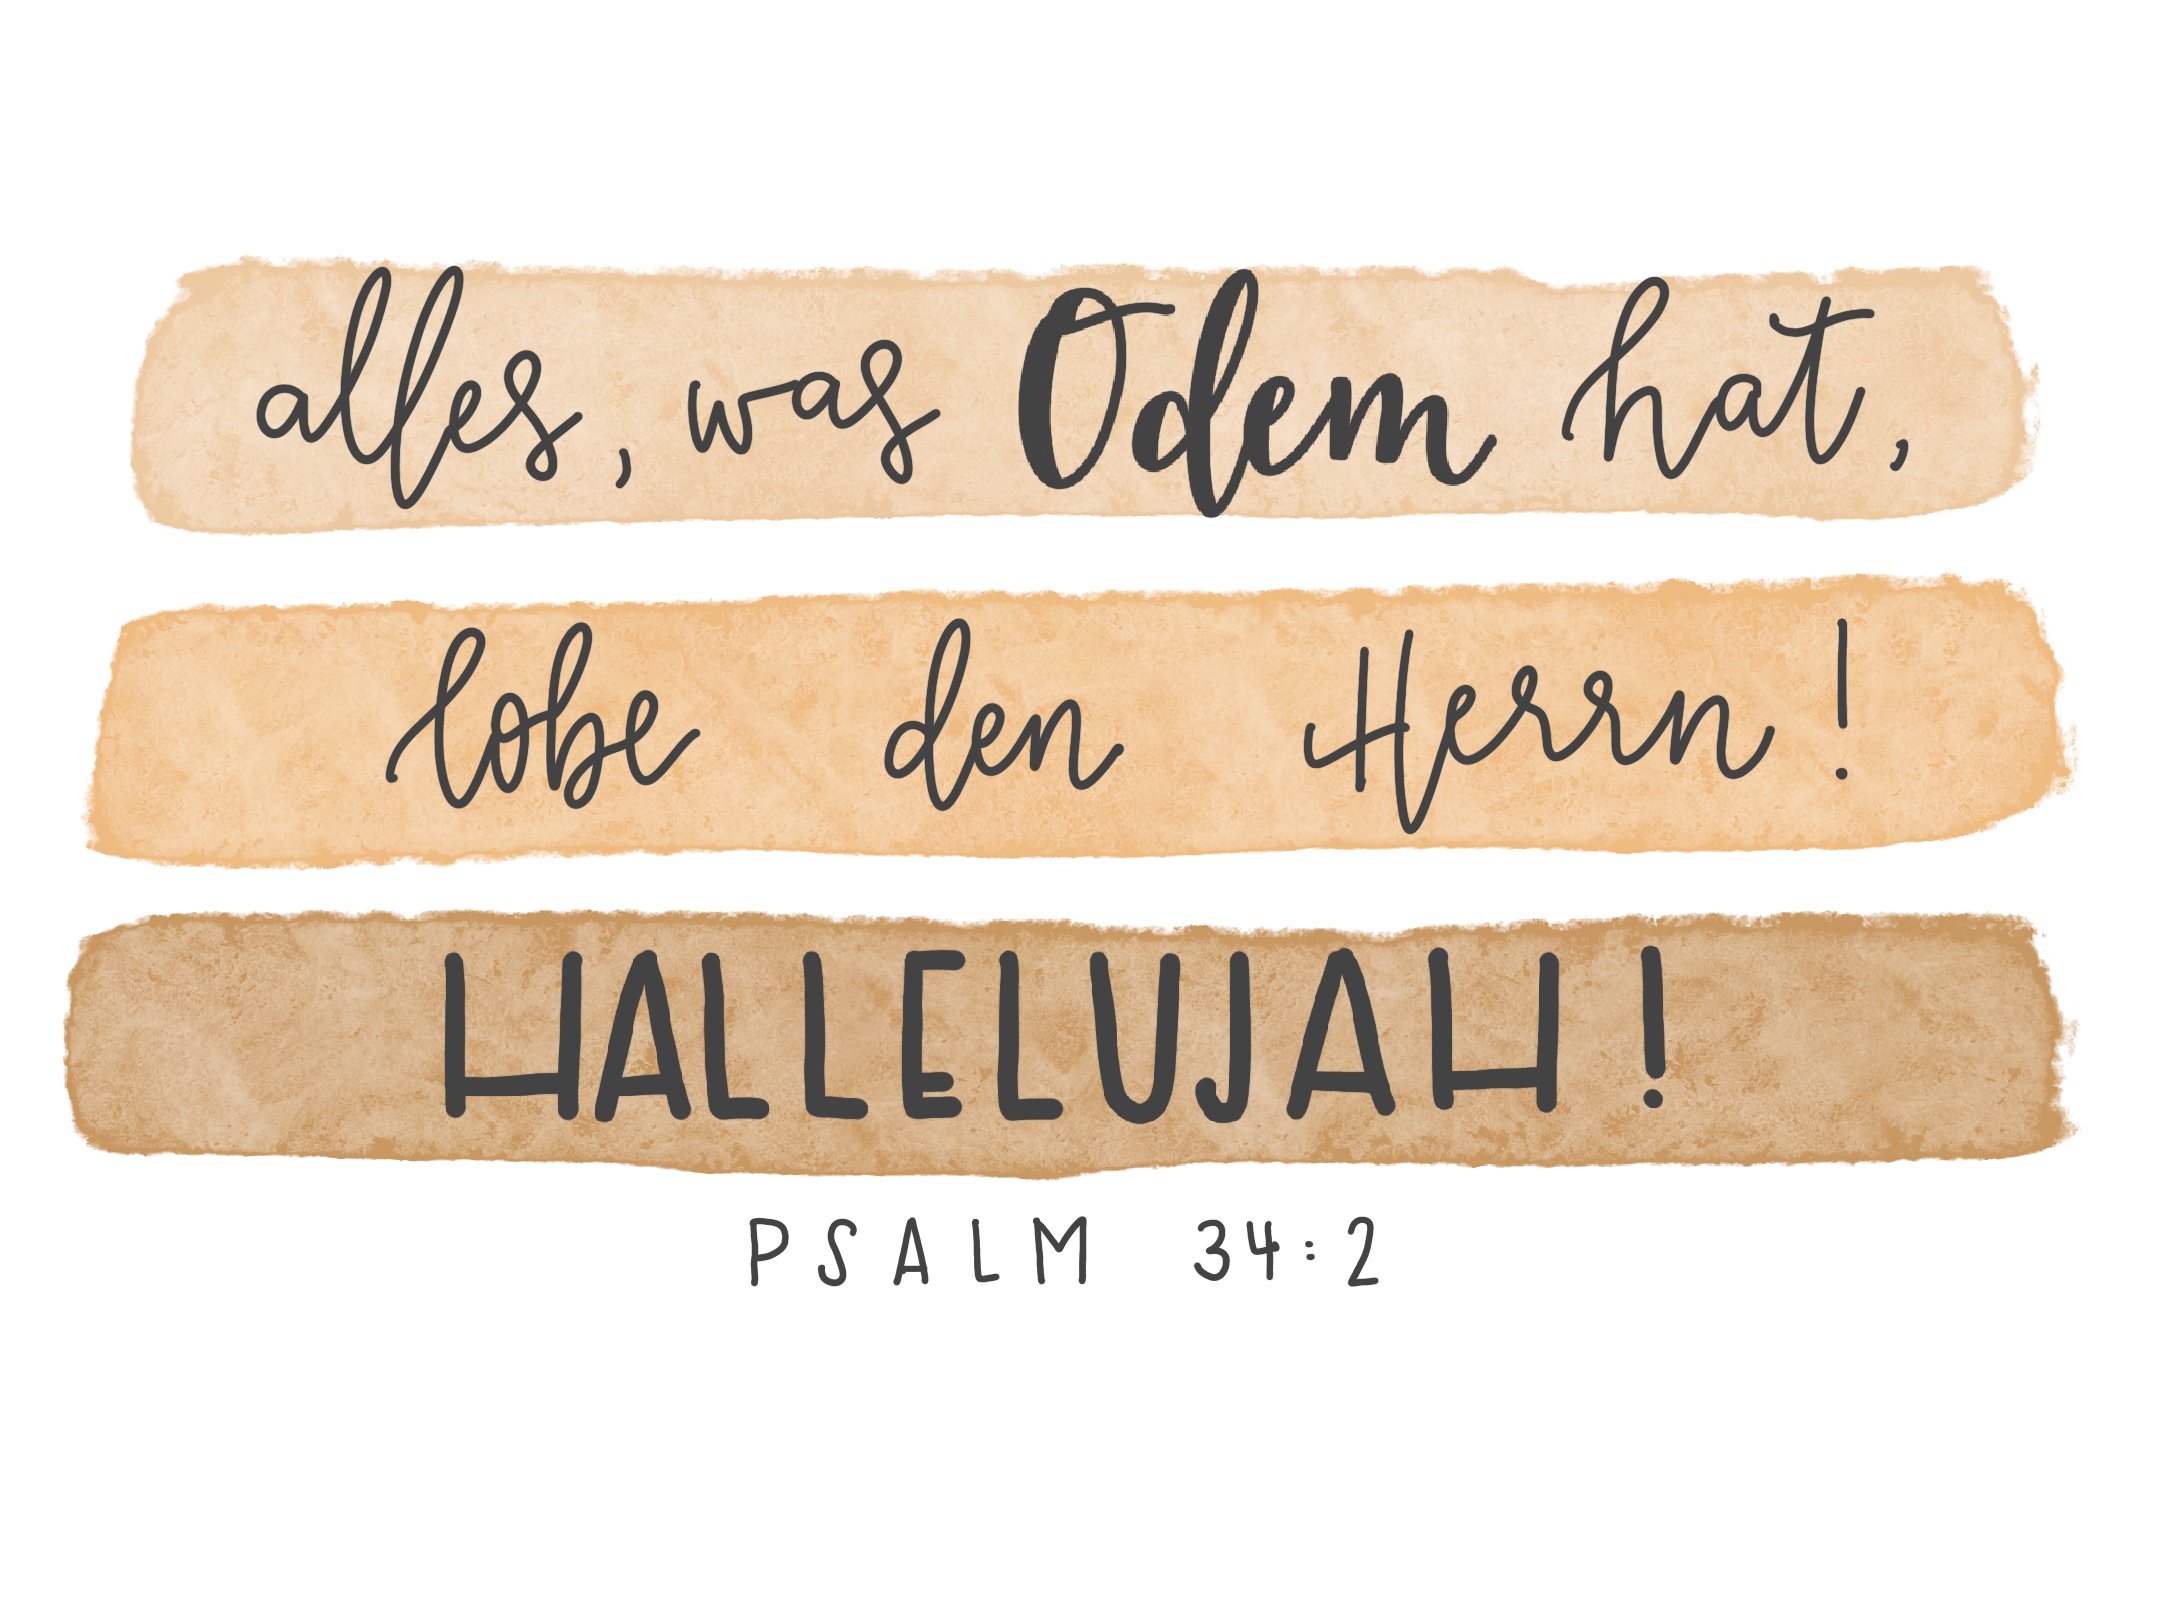 alles, was Odem hat,
lobe den Herrn!
HALLELUJAH!
PSALM 34:2